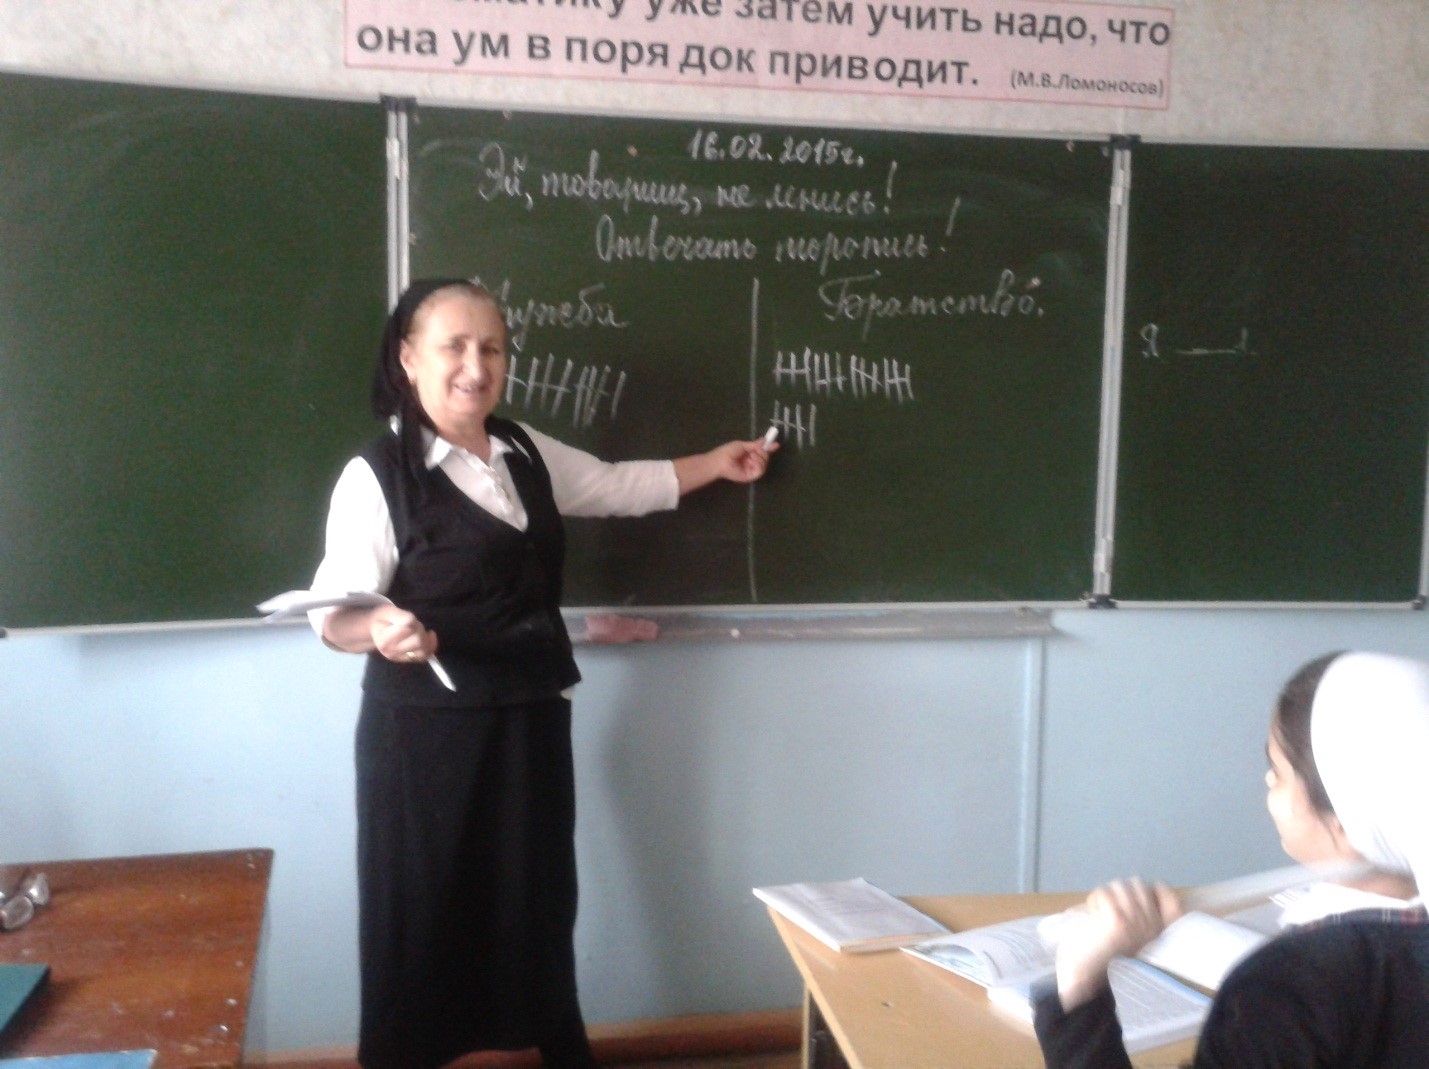 уже затем учить надо, что
она ум в поря док приводит. (М.В.Ломоносов)
16.02.2015г.
Эй, товарищ, не ленись!
Отвечать торопись!
Дружба Братство.
Я